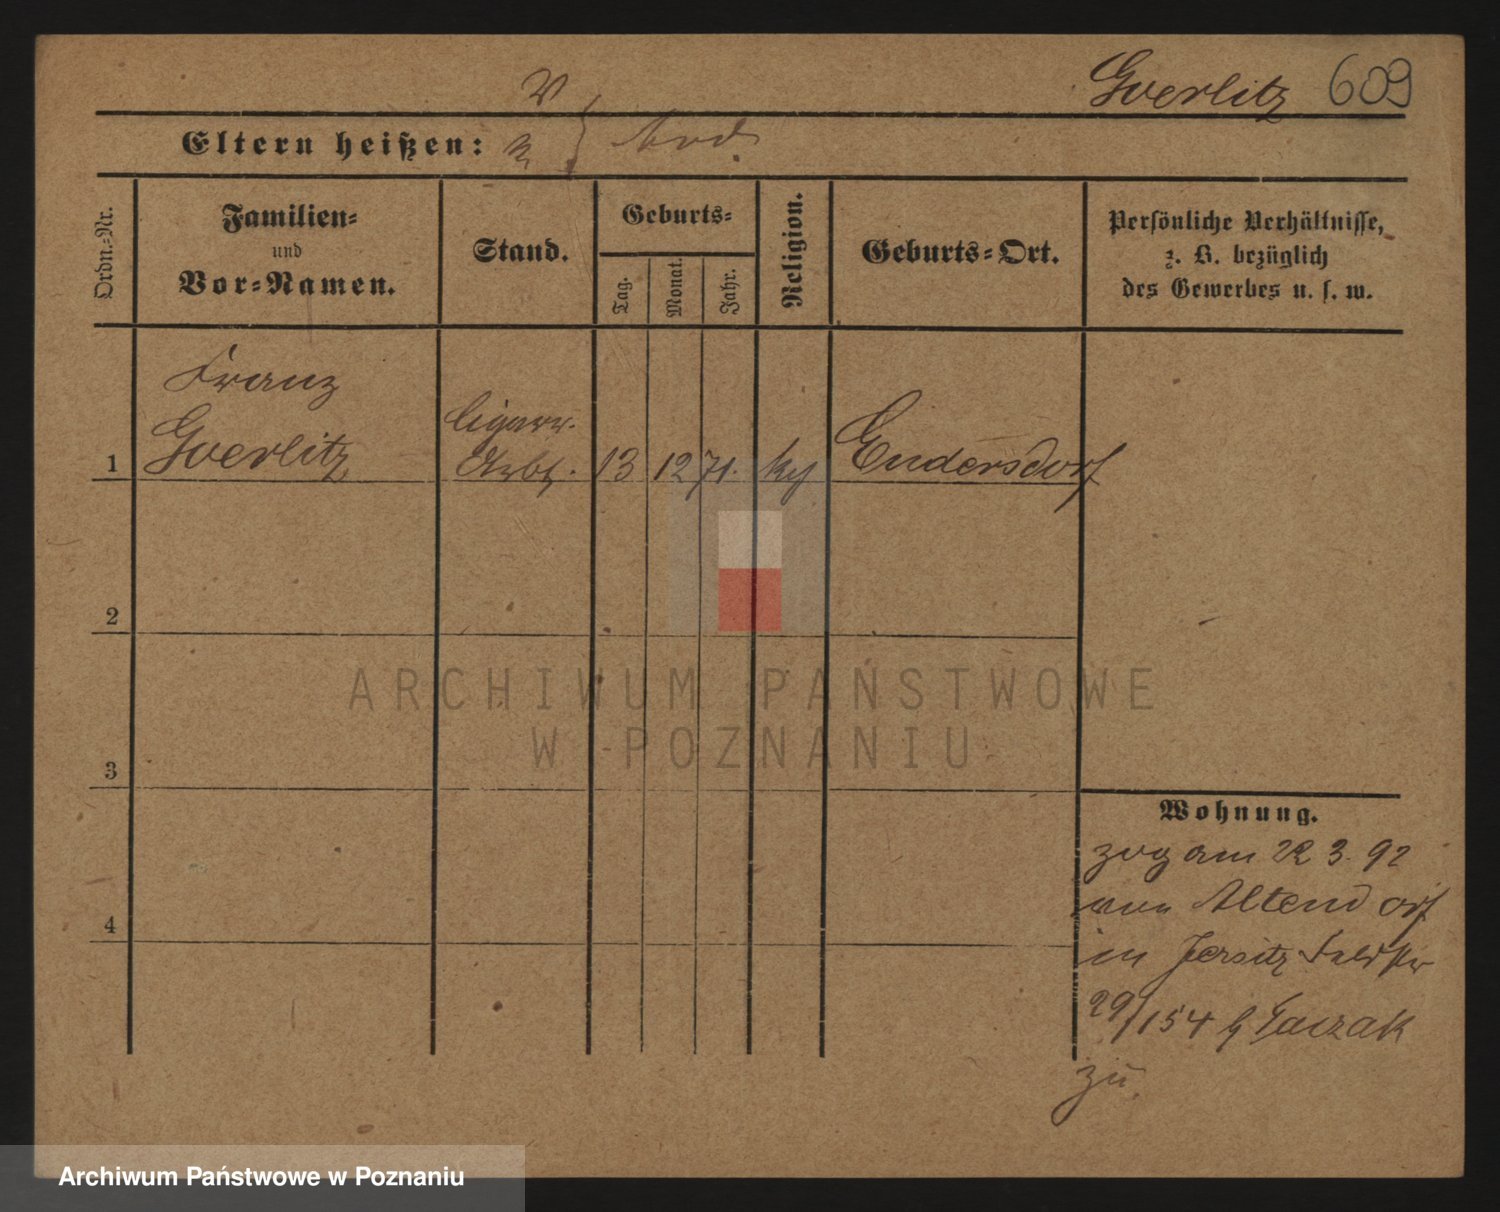 Goerlitz 609
V
Eltern heißen: M } tod.
Ordn.-Nr.
Familien-
und
Vor-Namen.
Stand.
Geburts-
Tag.
Monat.
Jahr.
Religion.
Geburts-Ort.
Persönliche Verhältnisse,
z. B. bezüglich
des Gewerbes u. s. w.
Franz
Goerlitz
Cigarr.
Arbt.
1 13 12 71. kg Endersdorf
2
3
4
ARCHIWUM PAŃSTWOWE
W POZNANIU
Wohnung.
zog am 22 3. 92
von Altendorf
in Jersitz Feldstr
29/154 b Taczak
zu.
Archiwum Państwowe w Poznaniu